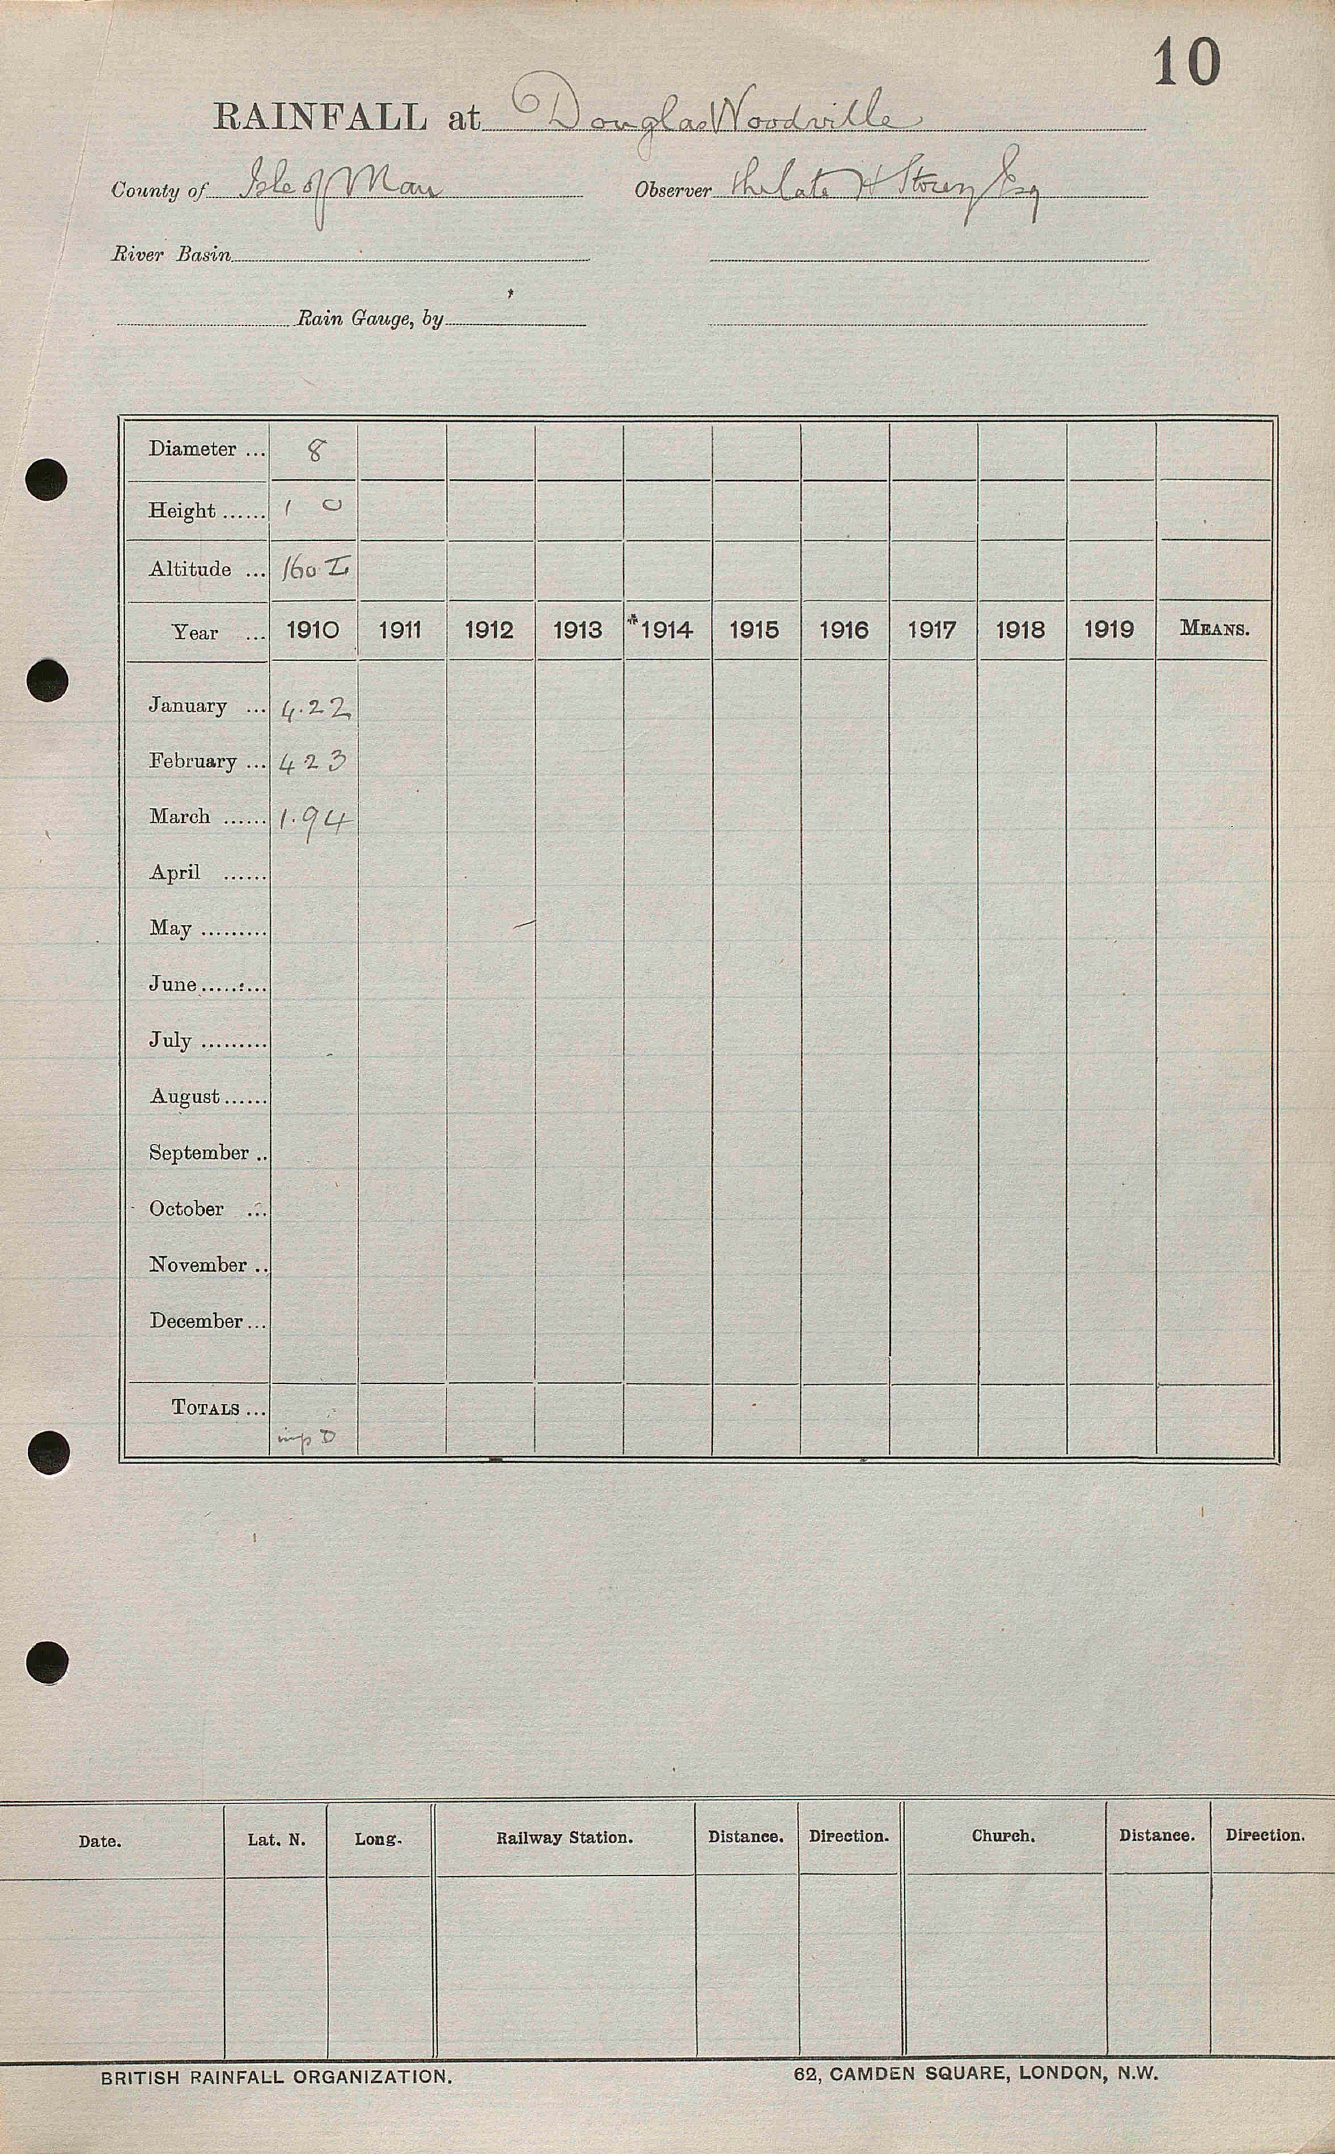 10
RAINFALL at Douglas Woodville
County of Isle of Man Observer the late H Storey Esq
River Basin
Rain Gauge, by
Diameter ... 8
Height ...... 1 0
Altitude ... 160 I
Year ... 1910 1911 1912 1913 *1914 1915 1916 1917 1918 1919 MEANS.
January ... 4.22
February ... 4 23
March ...... 1.94
April ......
May .........
June .........
July .........
August ......
September ..
October ...
November ..
December ...
TOTALS ...
imp D
Date. Lat. N. Long. Railway Station. Distance. Direction. Church. Distance. Direction.
BRITISH RAINFALL ORGANIZATION. 62, CAMDEN SQUARE, LONDON, N.W.